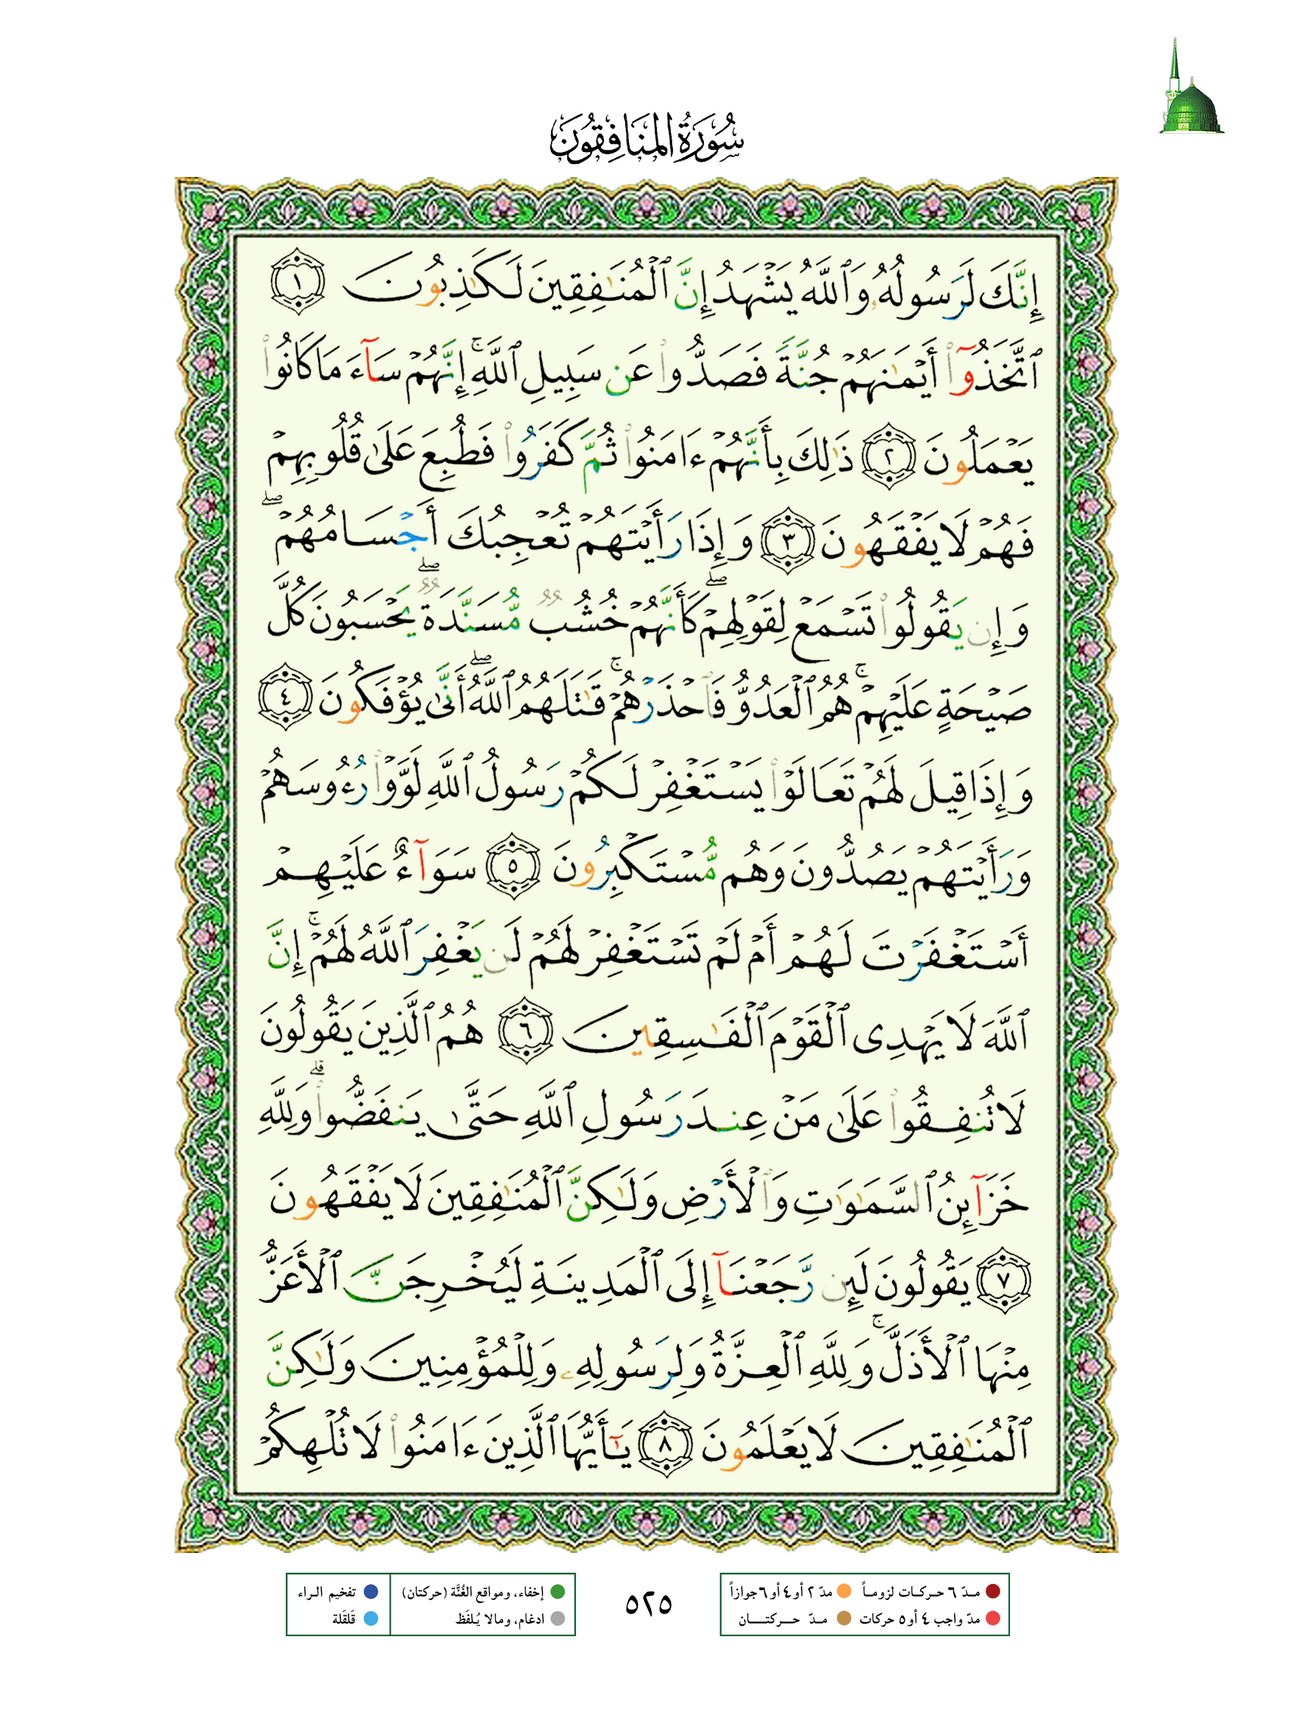 سُورَةُ المُنَافِقُونَ
إِنَّكَ لَرَسُولُهُۥ وَٱللَّهُ يَشۡهَدُ إِنَّ ٱلۡمُنَٰفِقِينَ لَكَٰذِبُونَ ١
ٱتَّخَذُوٓاْ أَيۡمَٰنَهُمۡ جُنَّةٗ فَصَدُّواْ عَن سَبِيلِ ٱللَّهِۚ إِنَّهُمۡ سَآءَ مَا كَانُواْ
يَعۡمَلُونَ ٢ ذَٰلِكَ بِأَنَّهُمۡ ءَامَنُواْ ثُمَّ كَفَرُواْ فَطُبِعَ عَلَىٰ قُلُوبِهِمۡ
فَهُمۡ لَا يَفۡقَهُونَ ٣ وَإِذَا رَأَيۡتَهُمۡ تُعۡجِبُكَ أَجۡسَامُهُمۡۖ
وَإِن يَقُولُواْ تَسۡمَعۡ لِقَوۡلِهِمۡۖ كَأَنَّهُمۡ خُشُبٞ مُّسَنَّدَةٞۖ يَحۡسَبُونَ كُلَّ
صَيۡحَةٍ عَلَيۡهِمۡۚ هُمُ ٱلۡعَدُوُّ فَٱحۡذَرۡهُمۡۚ قَٰتَلَهُمُ ٱللَّهُۖ أَنَّىٰ يُؤۡفَكُونَ ٤
وَإِذَا قِيلَ لَهُمۡ تَعَالَوۡاْ يَسۡتَغۡفِرۡ لَكُمۡ رَسُولُ ٱللَّهِ لَوَّوۡاْ رُءُوسَهُمۡ
وَرَأَيۡتَهُمۡ يَصُدُّونَ وَهُم مُّسۡتَكۡبِرُونَ ٥ سَوَآءٌ عَلَيۡهِمۡ
أَسۡتَغۡفَرۡتَ لَهُمۡ أَمۡ لَمۡ تَسۡتَغۡفِرۡ لَهُمۡ لَن يَغۡفِرَ ٱللَّهُ لَهُمۡۚ إِنَّ
ٱللَّهَ لَا يَهۡدِى ٱلۡقَوۡمَ ٱلۡفَٰسِقِينَ ٦ هُمُ ٱلَّذِينَ يَقُولُونَ
لَا تُنفِقُواْ عَلَىٰ مَنۡ عِندَ رَسُولِ ٱللَّهِ حَتَّىٰ يَنفَضُّواْۗ وَلِلَّهِ
خَزَآئِنُ ٱلسَّمَٰوَٰتِ وَٱلۡأَرۡضِ وَلَٰكِنَّ ٱلۡمُنَٰفِقِينَ لَا يَفۡقَهُونَ
٧ يَقُولُونَ لَئِن رَّجَعۡنَآ إِلَى ٱلۡمَدِينَةِ لَيُخۡرِجَنَّ ٱلۡأَعَزُّ
مِنۡهَا ٱلۡأَذَلَّۚ وَلِلَّهِ ٱلۡعِزَّةُ وَلِرَسُولِهِۦ وَلِلۡمُؤۡمِنِينَ وَلَٰكِنَّ
ٱلۡمُنَٰفِقِينَ لَا يَعۡلَمُونَ ٨ يَٰٓأَيُّهَا ٱلَّذِينَ ءَامَنُواْ لَا تُلۡهِكُمۡ
مـدّ ٦ حـركـات لزومـاً مدّ ٢ أو ٤ أو ٦ جوازاً
مدّ واجب ٤ أو ٥ حركات مـدّ حـــركتـــــان
٥٢٥
إخفاء، ومواقع الغُنَّة (حركتان) تفخيم الـراء
ادغام، ومالا يُـلفَظ قلقَلة